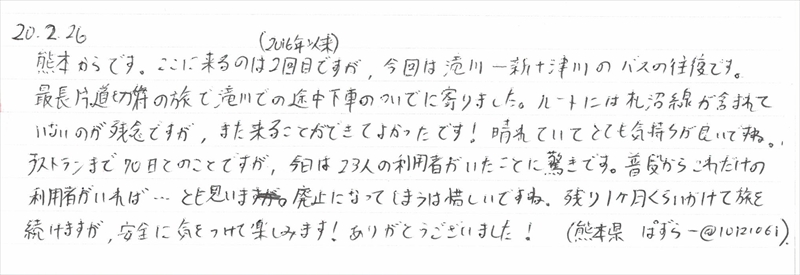 20.2.26
(2016年以来)
熊本からです。ここに来るのは2回目ですが、今回は滝川ー新十津川のバスの往復です。
最長片道切符の旅で滝川での途中下車のついでに寄りました。ルートには札沼線が含まれて
いないのが残念ですが、また来ることができてよかったです！晴れていてとても気持ちが良いですね。
ラストランまで70日とのことですが、今日は23人の利用者がいたことに驚きです。普段からこれだけの
利用者がいれば…とも思います。廃止になってしまうは惜しいですね。残り1ヶ月くらいかけて旅を
続けますが、安全に気をつけて楽しみます！ありがとうございました！ (熊本県 ぱずらー@1012106i)